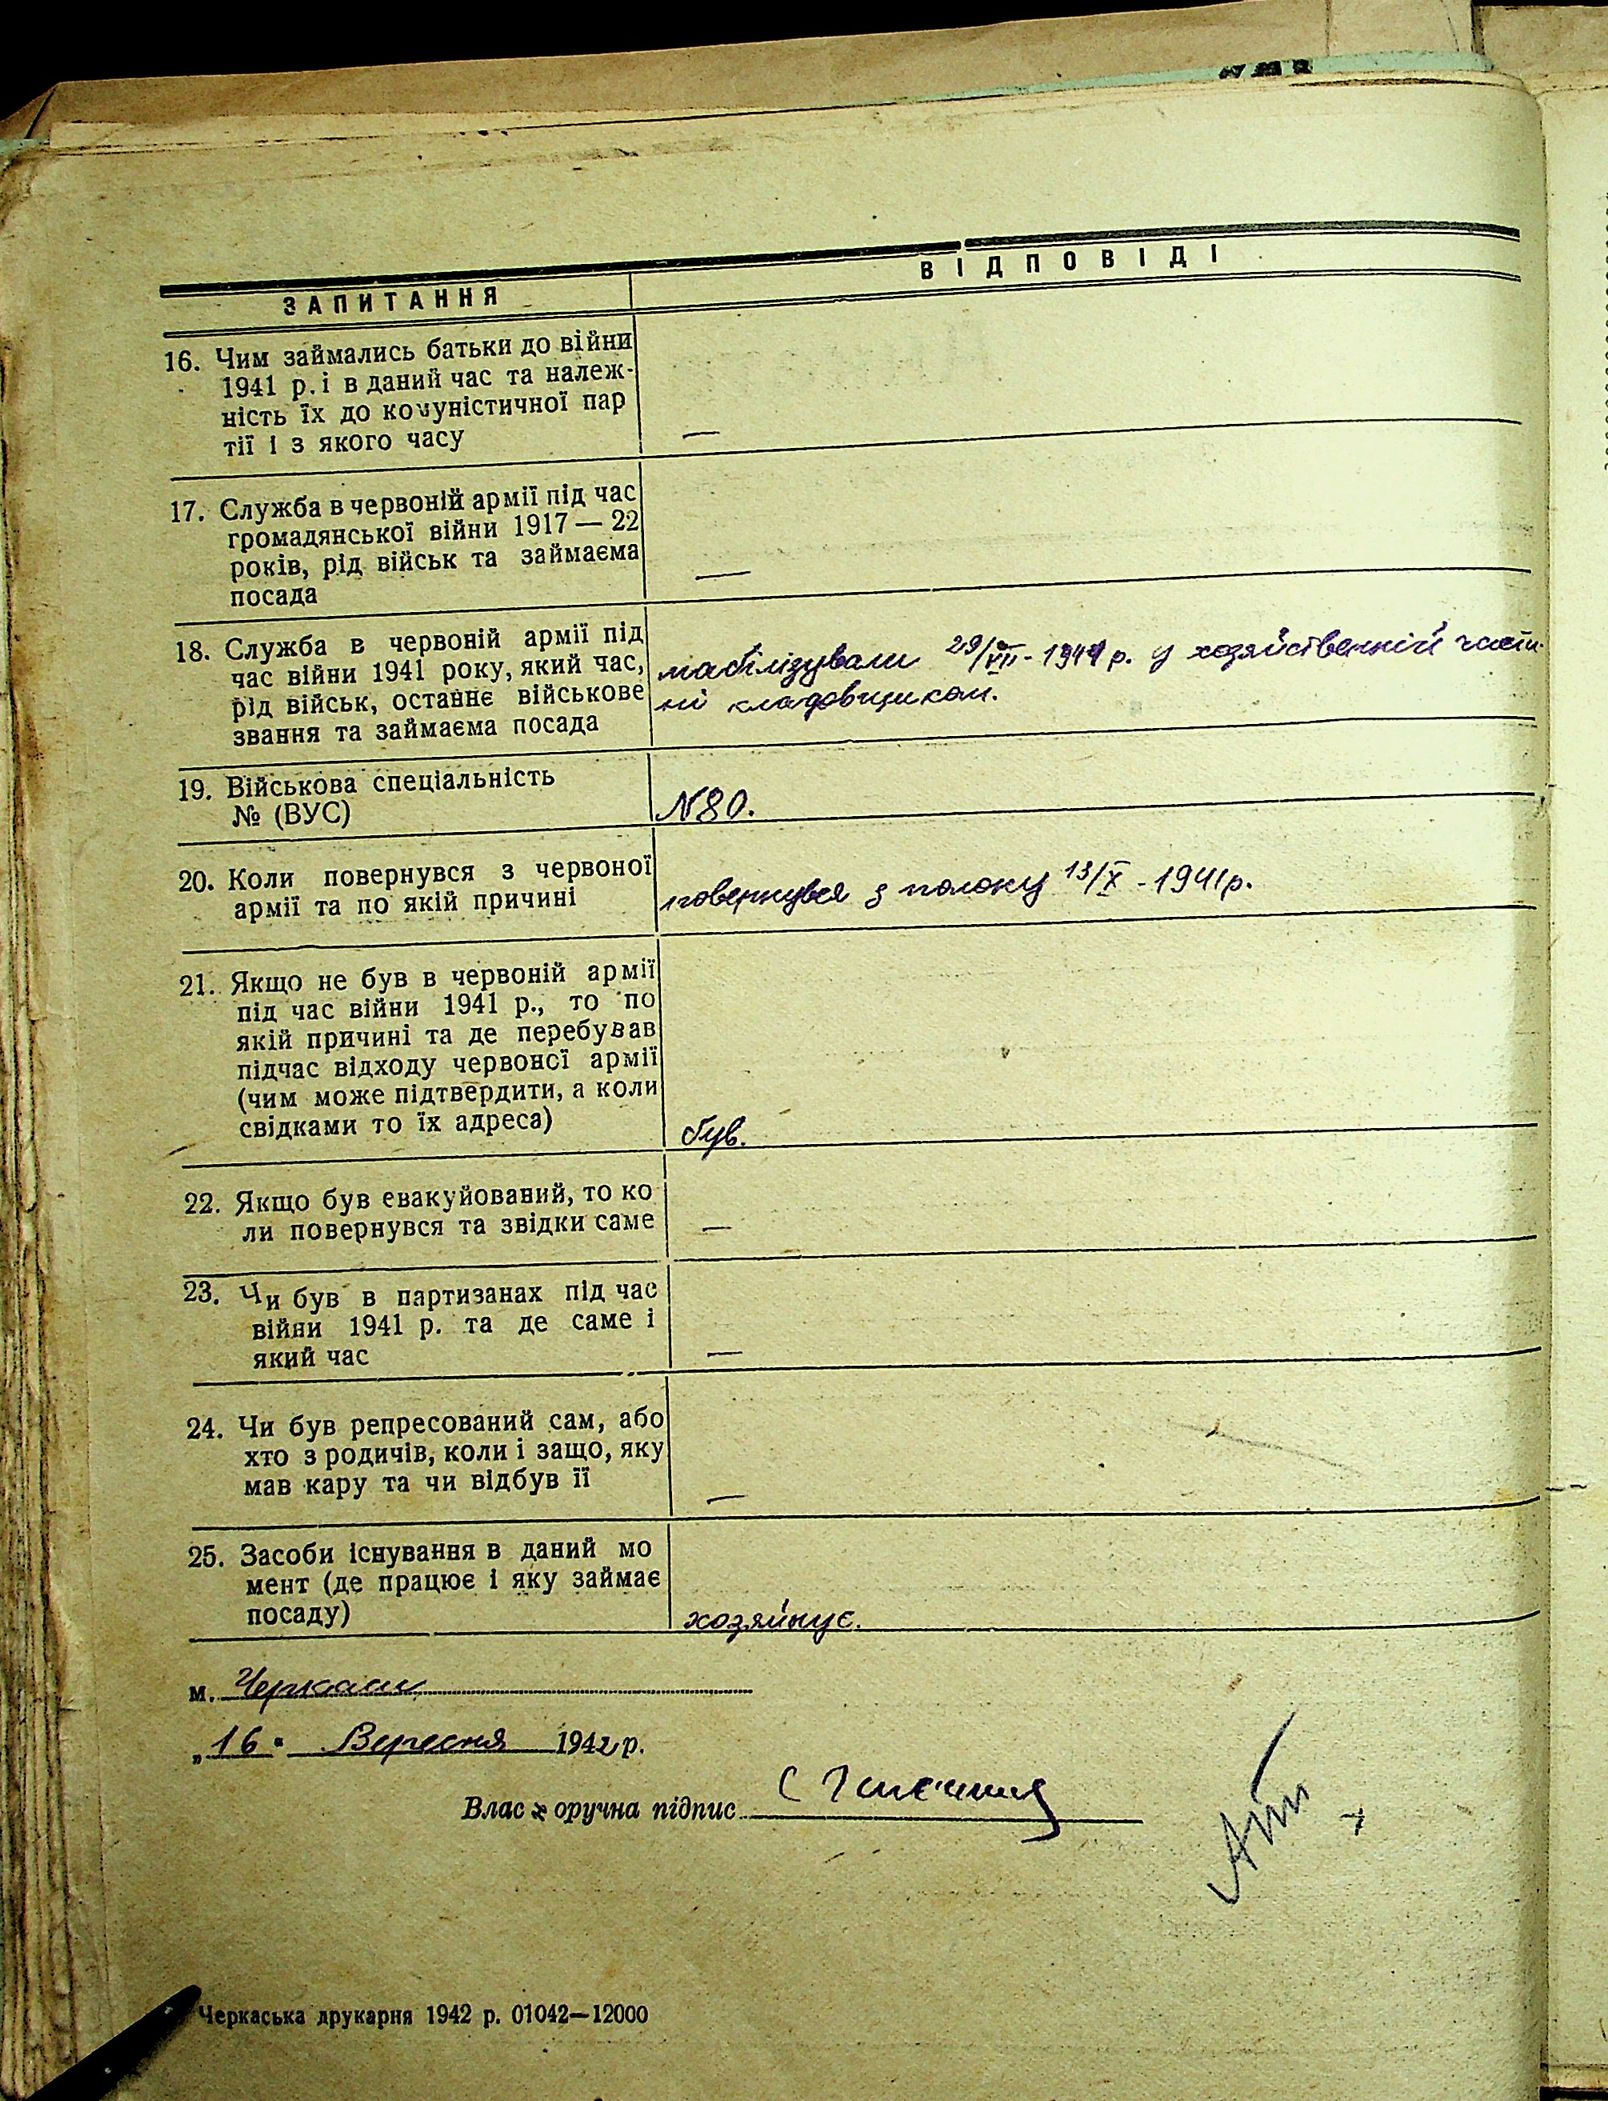 ЗАПИТАННЯ
ВІДПОВІДІ
16. Чим займались батьки до війни
1941 р. і в даний час та належ-
ність їх до комуністичної пар
тії і з якого часу
—
17. Служба в червоній армії під час
громадянської війни 1917 — 22
років, рід військ та займаєма
посада
—
18. Служба в червоній армії під
час війни 1941 року, який час,
рід військ, останнє військове
звання та займаєма посада
мабілізували 29/VII - 1941 р. у хозяйственній части-
ні кладовщиком.
19. Військова спеціальність
№ (ВУС)
N 80.
20. Коли повернувся з червоної
армії та по якій причині
повернувся з полону 13/X - 1941 р.
21. Якщо не був в червоній армії
під час війни 1941 р., то по
якій причині та де перебував
підчас відходу червоної армії
(чим може підтвердити, а коли
свідками то їх адреса)
був.
22. Якщо був евакуйований, то ко
ли повернувся та звідки саме
—
23. Чи був в партизанах під час
війни 1941 р. та де саме і
який час
—
24. Чи був репресований сам, або
хто з родичів, коли і защо, яку
мав кару та чи відбув її
—
25. Засоби існування в даний мо
мент (де працює і яку займає
посаду)
хозяйнує.
м. Черкаси
„16" Вересня 1942 р.
Власноручна підпис
Черкаська друкарня 1942 р. 01042—12000